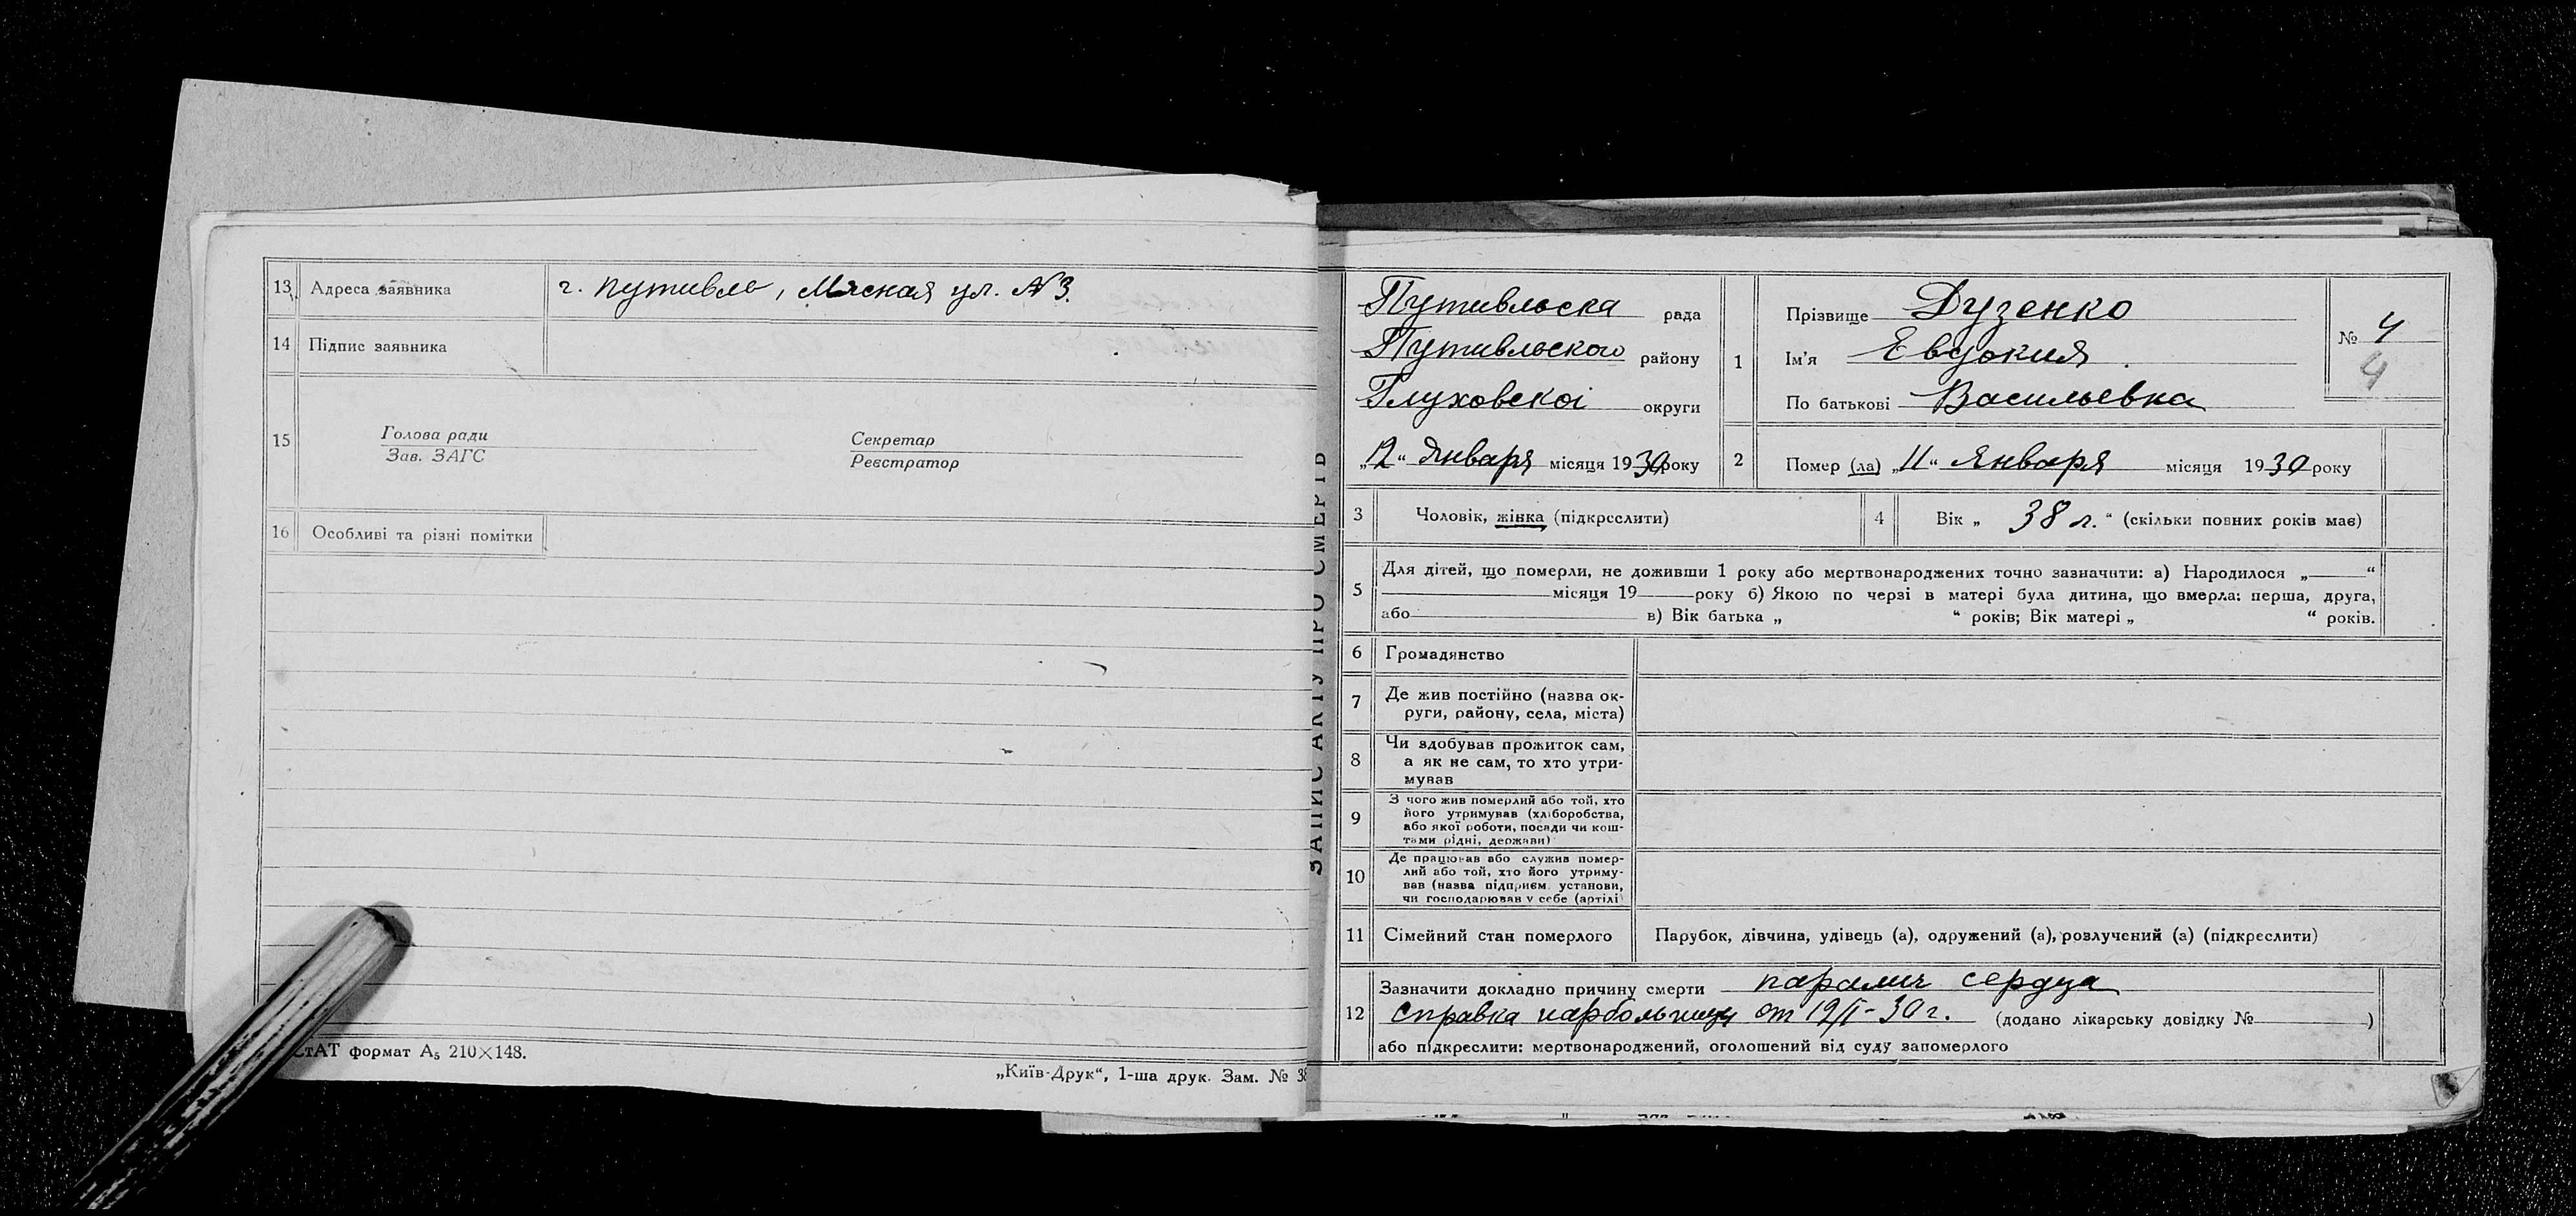 13 Адреса заявника г. Путивль, Мясная ул. №3.
14 Підпис заявника
15 Голова ради
Зав. ЗАГС
Секретар
Реєстратор
16 Особливі та різні помітки
СтАТ формат А₅ 210×148.
„Київ-Друк“, 1-ша друк. Зам. № 38
ЗАПИС АКТУ ПРО СМЕРТЬ
Путивльска рада
Путивльского району
Глуховскоі округи
„12“ Января місяця 1930 року
1 Прізвище Дузенко
Ім'я Евдокия
По батькові Васильевна
№ 4
4
2 Помер (ла) „11“ Января місяця 1930 року
3 Чоловік, жінка (підкреслити)
4 Вік „ 38 л. “ (скільки повних років мав)
5 Для дітей, що померли, не доживши 1 року або мертвонароджених точно зазначити: а) Народилося „ “
місяця 19 року б) Якою по черзі в матері була дитина, що вмерла: перша, друга,
або в) Вік батька „ “ років; Вік матері „ “ років.
6 Громадянство
7 Де жив постійно (назва ок-
руги, району, села, міста)
8 Чи здобував прожиток сам,
а як не сам, то хто утри-
мував
9 З чого жив померлий або той, хто
його утримував (хліборобства,
або якої роботи, посади чи кош-
тами рідні, держави)
10 Де працював або служив помер-
лий або той, хто його утриму-
вав (назва підприєм. установи,
чи господарював у себе (артілі)
11 Сімейний стан померлого Парубок, дівчина, удівець (а), одружений (а), розлучений (а) (підкреслити)
12 Зазначити докладно причину смерти паралич сердца
Справка нарбольницы от 12/I-30 г. (додано лікарську довідку № )
або підкреслити: мертвонароджений, оголошений від суду запомерлого